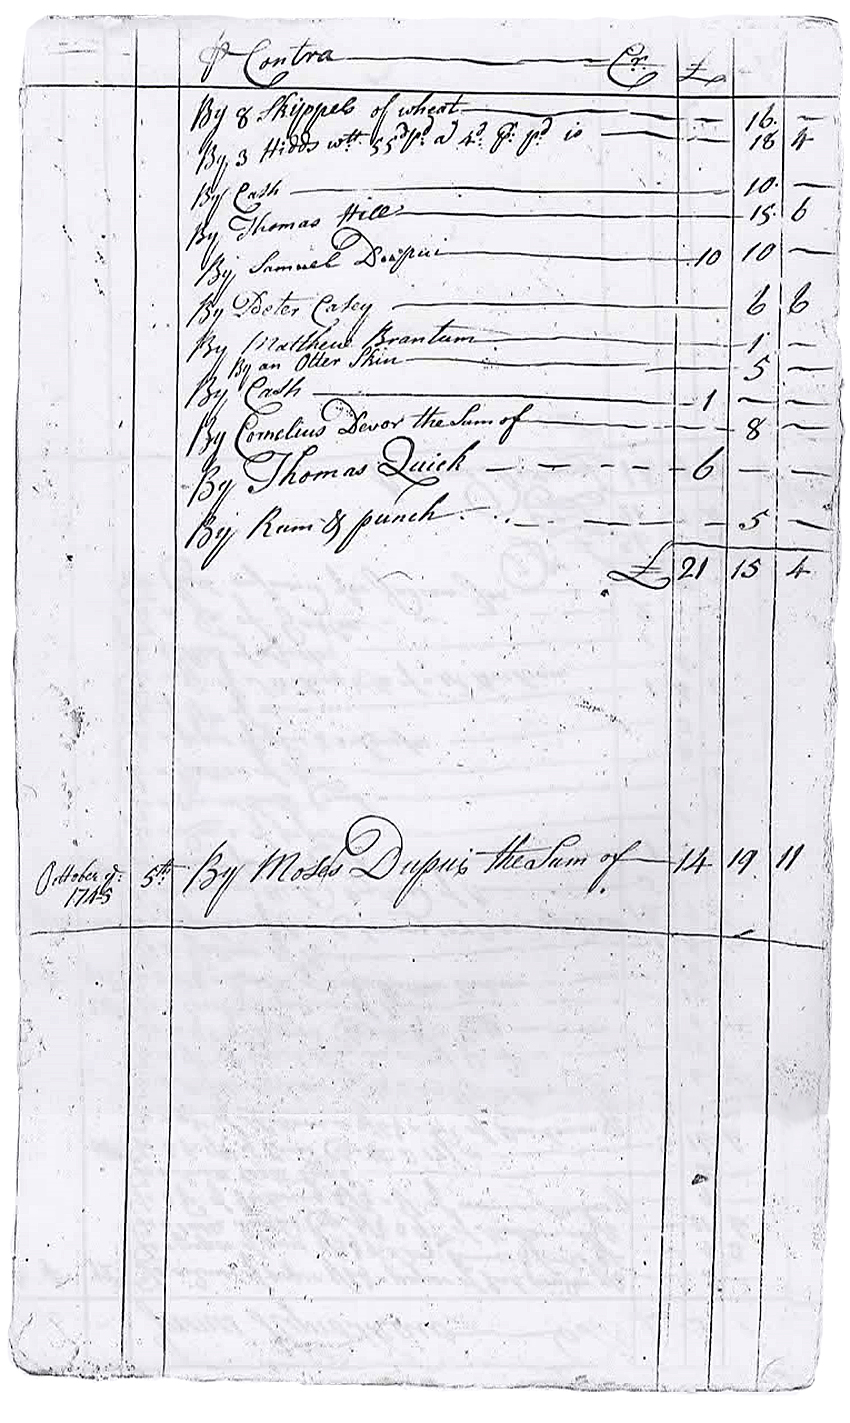 ⅌ Contra — Cr. £
By 8 Skippels of wheat — 16. —
By 3 Hidds wtt. 55d pd. a 4d. ⅌. pd is — 18 4
By Cash — 10. —
By Thomas Hill — 15. 6
By Samuel Dupui — 10 10 —
By Peter Casey — 6 6
By Matthew Brantum — 1 —
By an Otter Skin — 5 —
By Cash — 1 — —
By Cornelius Devor the Sum of — 8 —
By Thomas Quick — 6 — —
By Rum & punch — 5 —
£ 21 15 4
October ye. 5th. By Moses Dupui the Sum of — 14 19 11
1745